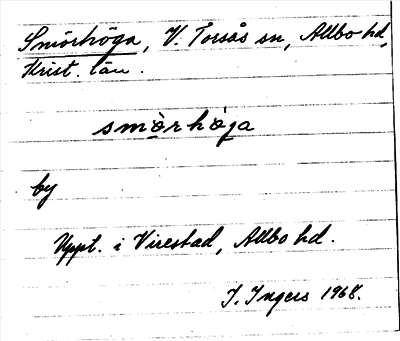 Smörhöga, V. Torsås sn, Allbo hd,
Krist. län.
smö̀rhö́ga
by
Uppt. i Virestad, Allbo hd.
I. Ingers 1968.